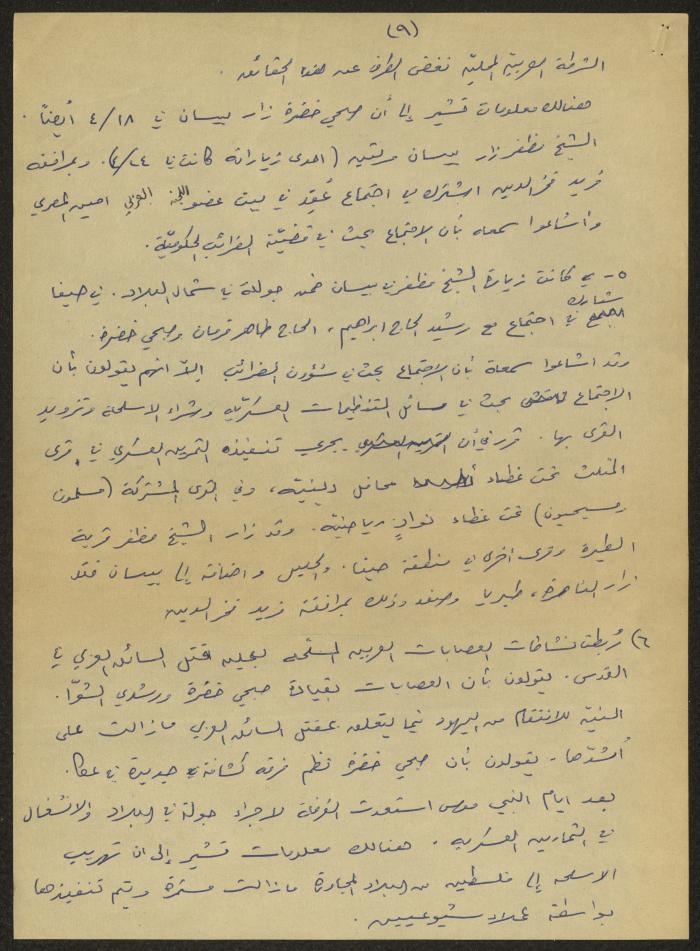 (٩)
الشرطة العربية المحلية تغض الطرف عن هذه الحقائق .
هنالك معلومات تشير إلى أن صبحي خضرة زار بيسان في ٤/١٨ أيضاً .
الشيخ مظفر زار بيسان مرتين (احدى زياراته كانت في ٤/٢٤). وبمرافقة
فريد فخر الدين اشترك في اجتماع عُقد في بيت عضو اللجنة العربي امين المصري
واشاعوا سمعه بأن الاجتماع بحث في قضيّة الضرائب الحكوميّة .
٥- كانت زيارة الشيخ مظفر في بيسان ضمن جولة في شمال البلاد . في حيفا
شارك
في اجتماع مع رشيد الحاج ابراهيم، الحاج طاهر قرمان وصبحي خضرة .
وقد اشاعوا سمعة بأن الاجتماع بحث في شؤون الضرائب إلاّ انهم يقولون بأن
الاجتماع بحث في مسائل التنظيمات العسكريّة وشراء الاسلحة وتزويد
القرى بها . تقرر في أن يجري تنفيذه التمرين العسكري في قرى
المثلث تحت غطاء محافل دينية، وفي القرى المشتركة (مسلمون
ومسيحيون) تحت غطاء نوادٍ رياضية . وقد زار الشيخ مظفر قرية
الطيرة وقرى أخرى في منطقة حيفا . والجليل واضافة إلى بيسان فقد
زار الناصرة، طبريا وصفد وذلك بمرافقة فريد فخر الدين
٦) رُبطت نشاطات العصابات العربيه المسلّحه بعملية قتل السائق العربي في
القدس . يقولون بأن العصابات بقيادة صبحي خضرة ورشدي الشوّا .
النيّة للانتقام من اليهود فيما يتعلق بمقتل السائق العربي ما زالت على
أشدّها . يقولون بأن صبحي خضرة نظم فرقة كشافة جديدة في عكا .
بعد ايام النبي موسى استعدت الفرقة لاجراء جولة في البلاد والانشغال
في التمارين العسكريه . هنالك معلومات تشير إلى ان تهريب
الاسلحه إلى فلسطين من البلاد المجاورة ما زالت مستمرة ويتم تنفيذها
بواسطة عملاء شيوعيين .